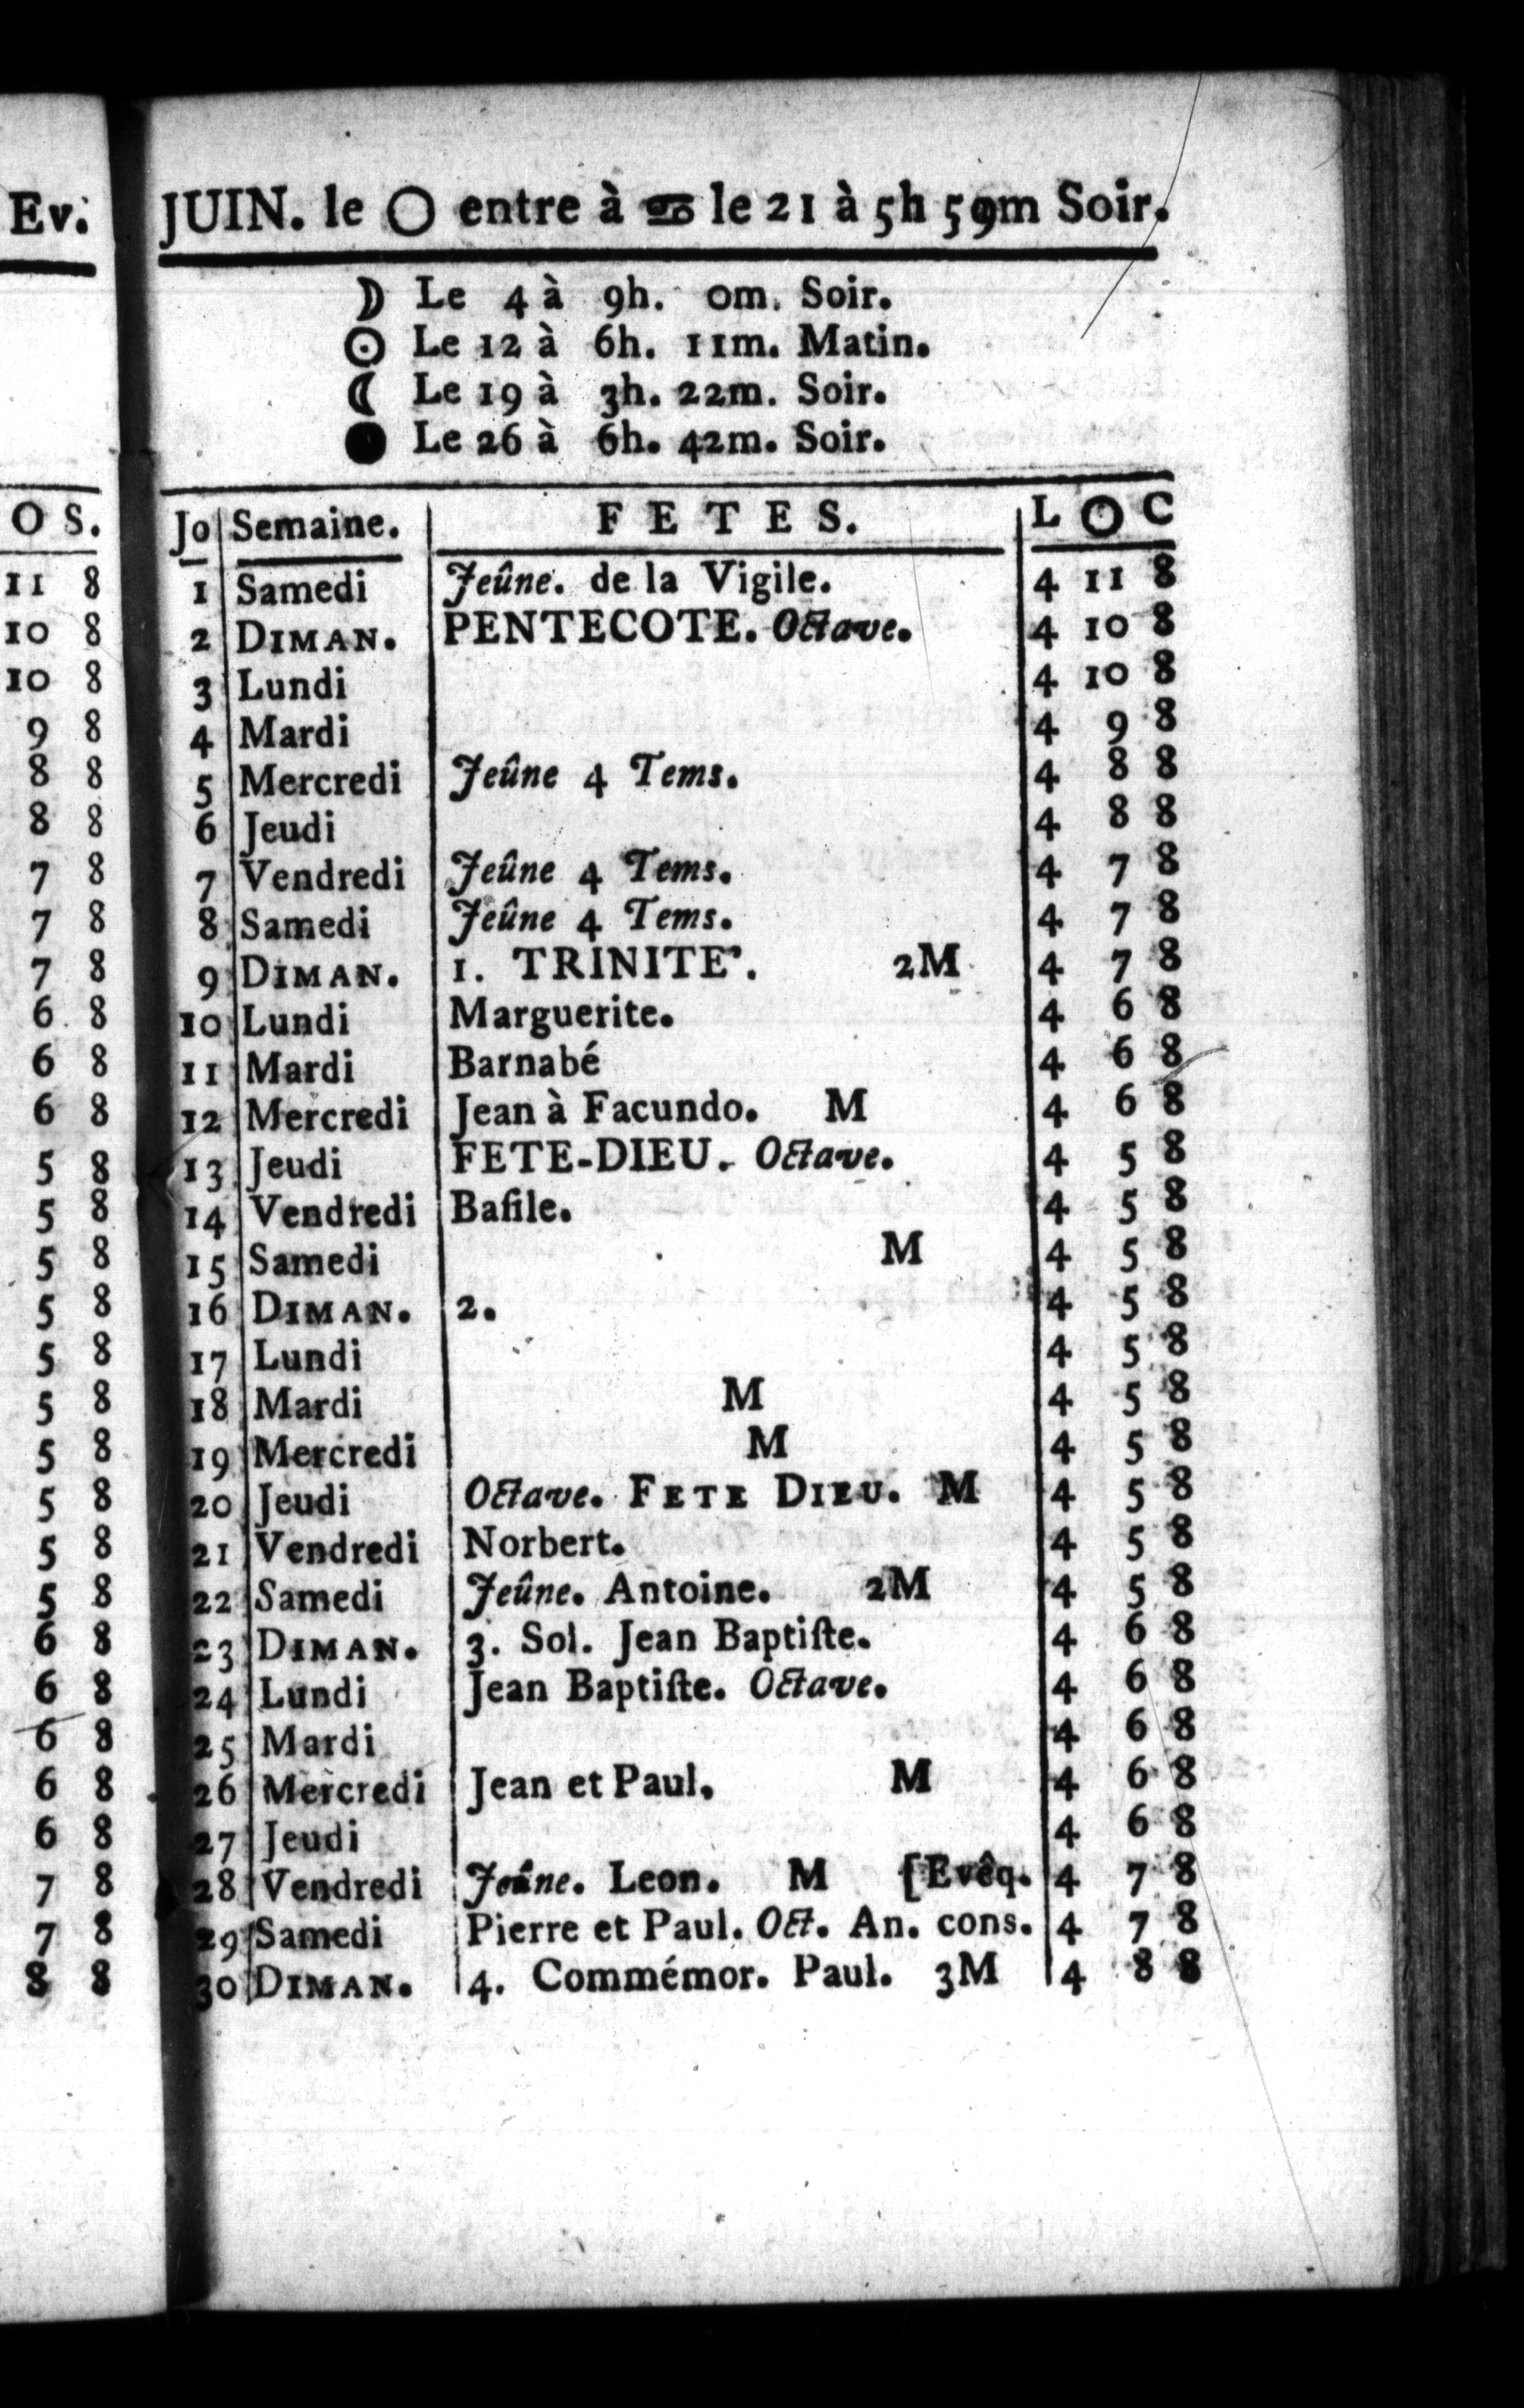 Ev.
O S.
11 8
10 8
10 8
9 8
8 8
8 8
7 8
7 8
7 8
6 8
6 8
6 8
5 8
5 8
5 8
5 8
5 8
5 8
5 8
5 8
5 8
5 8
6 8
6 8
6 8
6 8
6 8
7 8
7 8
8 8
JUIN. le ○ entre à ♋ le 21 à 5h 59m Soir.
☽ Le 4 à 9h. 0m. Soir.
☉ Le 12 à 6h. 11m. Matin.
☾ Le 19 à 3h. 22m. Soir.
● Le 26 à 6h. 42m. Soir.
Jo Semaine. FETES. L O C
1 Samedi Jeûne. de la Vigile. 4 11 8
2 DIMAN. PENTECOTE. Octave. 4 10 8
3 Lundi 4 10 8
4 Mardi 4 9 8
5 Mercredi Jeûne 4 Tems. 4 8 8
6 Jeudi 4 8 8
7 Vendredi Jeûne 4 Tems. 4 7 8
8 Samedi Jeûne 4 Tems. 4 7 8
9 DIMAN. 1. TRINITE'. 2M 4 7 8
10 Lundi Marguerite. 4 6 8
11 Mardi Barnabé 4 6 8
12 Mercredi Jean à Facundo. M 4 6 8
13 Jeudi FETE-DIEU. Octave. 4 5 8
14 Vendredi Baſile. 4 5 8
15 Samedi M 4 5 8
16 DIMAN. 2. 4 5 8
17 Lundi 4 5 8
18 Mardi M 4 5 8
19 Mercredi M 4 5 8
20 Jeudi Octave. FETE DIEU. M 4 5 8
21 Vendredi Norbert. 4 5 8
22 Samedi Jeûne. Antoine. 2M 4 5 8
23 DIMAN. 3. Sol. Jean Baptiſte. 4 6 8
24 Lundi Jean Baptiſte. Octave. 4 6 8
25 Mardi 4 6 8
26 Mercredi Jean et Paul. M 4 6 8
27 Jeudi 4 6 8
28 Vendredi Jeûne. Leon. M [Evêq. 4 7 8
29 Samedi Pierre et Paul. Oct. An. cons. 4 7 8
30 DIMAN. 4. Commémor. Paul. 3M 4 8 8